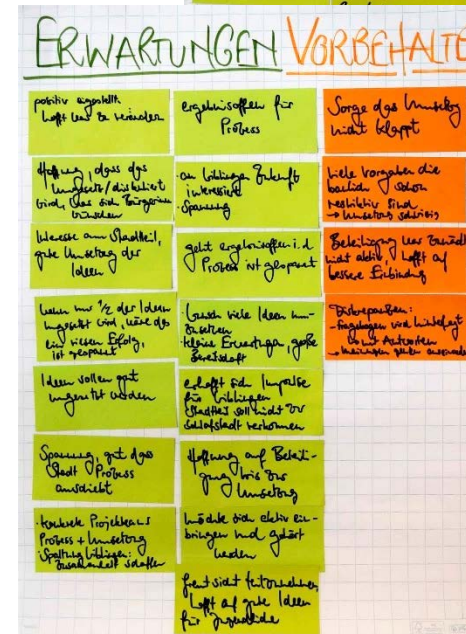 ERWARTUNGEN VORBEHALTE
positiv eingestellt
hofft was zu verändern
Hoffnung, dass das
umgesetzt/diskutiert
wird, was sich Bürgerinnen
wünschen
Interesse am Stadtteil,
gute Umsetzung der
Ideen
wenn nur 1/2 der Ideen
umgesetzt wird, wäre das
ein riesen Erfolg,
ist gespannt
Ideen sollen gut
umgesetzt werden
Spannung, gut dass
Stadt Prozess
anschiebt
· konkrete Projekte aus
Prozess + Umsetzung
· Spaltung Wiblingen:
Zusammenhalt schaffen
ergebnisoffen für
Prozess
an Wiblingen Zukunft
interessiert
· Spannung
geht ergebnisoffen i.d.
Prozess ist gespannt
viele Ideen um-
zusetzen
· kleine Erwartungen, große
Bereitschaft
erhofft sich Impulse
für Wiblingen
Stadtteil soll nicht zur
Schlafstadt verkommen
Hoffnung auf Beteili-
gung bis zur
Umsetzung
möchte sich aktiv ein-
bringen und gehört
werden
freut sich teilzunehmen
hofft auf gute Ideen
für Jugendliche
Sorge das Umsetzung
nicht klappt
viele Vorgaben die
baulich schon
restriktiv sind
→ Umsetzung schwierig
Beteiligung war
nicht aktiv, hofft auf
bessere Einbindung
Diskrepanzen:
- Fragebogen wird hinterfragt
mit Antworten
→ Meinungen gehen auseinander